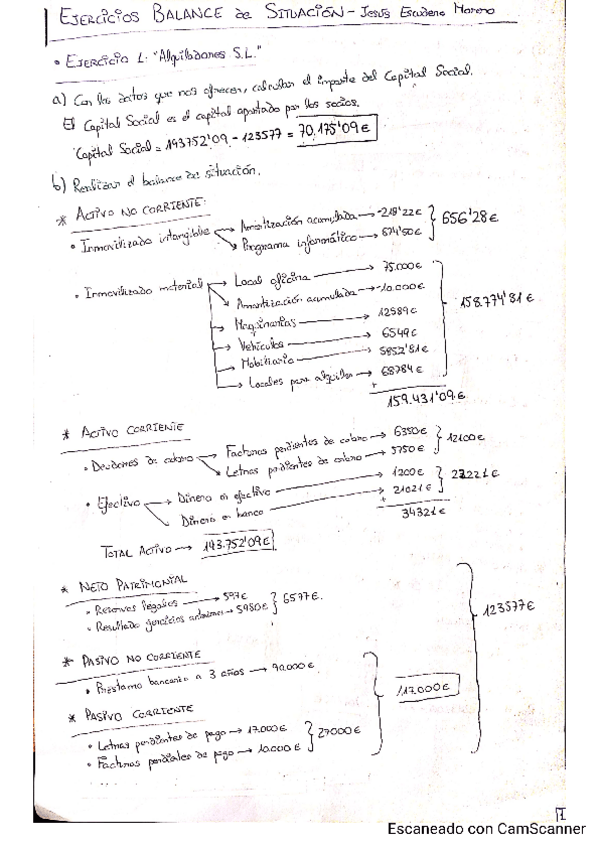 EJERCICIOS BALANCE de SITUACIÓN - Jesús Escudero Moreno
• EJERCICIO 1. "Alquiladones S.L."
a) Con los datos que nos ofrecen, calcular el importe del Capital Social.
El Capital Social es el capital aportado por los socios.
Capital Social = 193752'09 - 123577 = 70.175'09€
b) Realizar el balance de situación.
* ACTIVO NO CORRIENTE:
• Inmovilizado intangible → Amortización acumulada → -218'22€
→ Programa informático → 874'50€
656'28€
• Inmovilizado material → Local oficina → 75.000€
→ Amortización acumulada → -10.000€
→ Maquinarias → 12589€
→ Vehículos → 6549€
→ Mobiliario → 5852'81€
→ Locales para alquilar → 68784€
158.774'81€
+
159.431'09€
* ACTIVO CORRIENTE
• Deudores de cobro → Facturas pendientes de cobro → 6350€
→ Letras pendientes de cobro → 5750€
12100€
• Efectivo → Dinero en efectivo → 1200€
→ Dinero en banco → 21021€
22221€
+
34321€
TOTAL ACTIVO → 193.752'09€
* NETO PATRIMONIAL
• Reservas legales → 597€
• Resultado ejercicios anteriores → 5980€
6577€.
* PASIVO NO CORRIENTE
• Préstamo bancario a 3 años → 90.000€
* PASIVO CORRIENTE
• Letras pendientes de pago → 17.000€
• Facturas pendientes de pago → 10.000€
27000€
117.000€
123577€
1
Escaneado con CamScanner